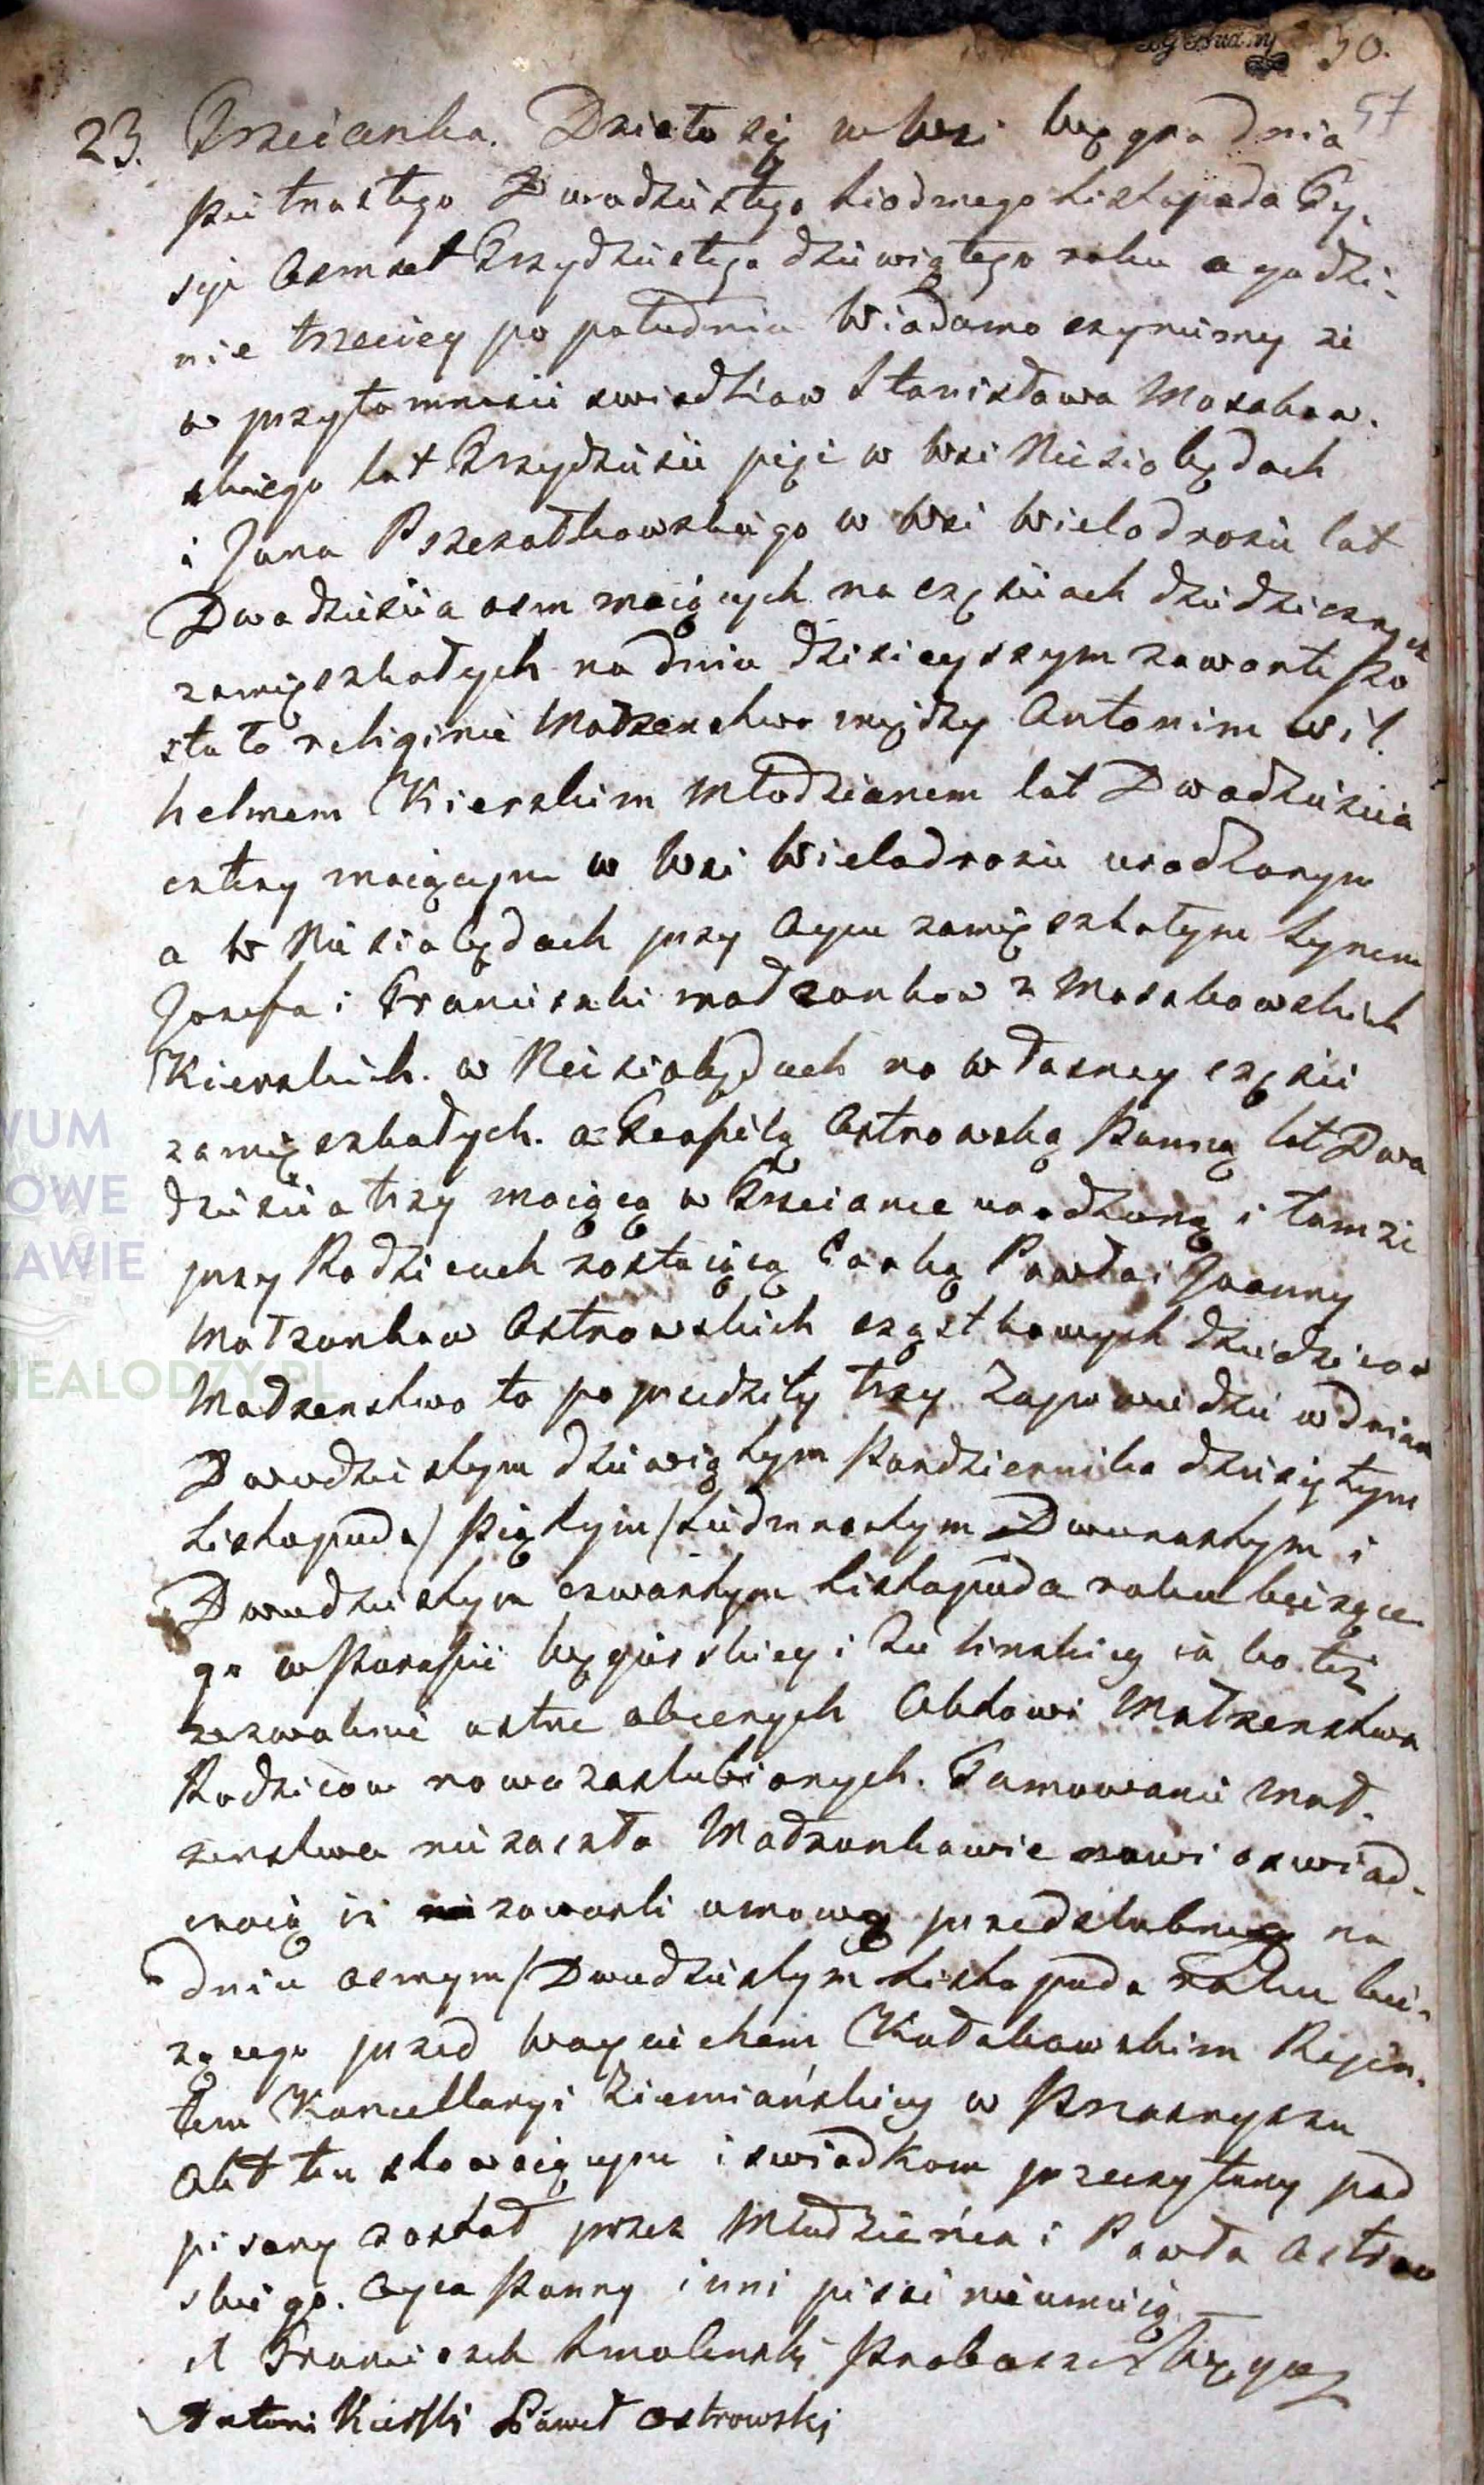 50.
57
23. Trzcianka. Działo się w wsi Węgra dnia
Piętnastego Dwudziestego siodmego Listopada Ty-
siąc Osmset Trzydziestego dziewiątego roku o godzi-
nie trzeciey po południu Wiadomo czynimy że
w przytomności swiadków Stanisława Mosakow-
skiego lat Trzydzieści pięć w wsi Niesiobędach
i Jana Pszczołkowskiego w wsi Wielodrożu lat
Dwadzieścia osm maiących na częściach dziedzicznych
zamięszkałych na dniu dzisieyszym zawarte zo
stało religijne Małżenstwo między Antonim Wil
helmem Kierskim Młodzianem lat Dwadzieścia
cztery maiącym w Wsi Wielodrożu urodzonym
a w Niesiobędach przy Oycu zamięszkałym Synem
Jozefa i Franciszki małżonkow z Mosakowskich
Kierskich. w Niesiobędach na własney części
zamięszkałych. a Teofilą Ostrowską Panną lat Dwa
dzieścia trzy maiącą w Trzciance urodzoną i tamże
przy Rodzicach zostaiącą Corką Pawła i Joanny
Małżonkow Ostrowskich cząstkowych dziedzicow
Małżenstwo to poprzedziły trzy Zapowiedzie w dniach
Dwudziestym dziewiątym Pazdziernika dziesiątym
Listopada / Piątym / siedmnastym Dwunastym i
Dwudziestym czwartym Listopada roku bieżące
go w Parafii Węgierskiey i Zielinskiey iako też
zezwolenie ustne obecnych Aktowi Małżenstwa
Rodzicow nowozaslubionych. Tamowanie Mał-
żenstwa nie zaszło Małżonkowie nowi oswiad-
czaią iż zawarli umowę przedslubną na
dniu osmym / Dwudziestym Listopada roku bie-
żącego przed Woyciechem Kołakowskim Rejen-
tem Kancellaryi Ziemiańskiey w Przasnyszu
Akt ten stawaiącym i swiadkom przeczytany pod
pisany został przez Młodzieńca i Pawła Ostrow
skiego. Oyca Panny inni pisać nie umieią
X Franciszek Smolenski Proboszcz Węgrz
Antoni Kierski Paweł Ostrowski
WUM
OWE
ZAWIE
NEALODZY.PL